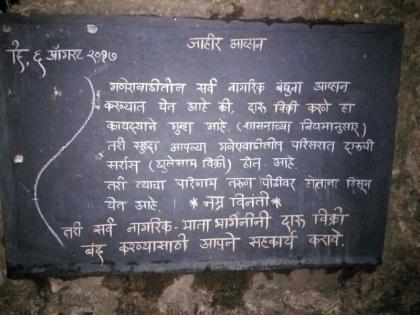 जाहीर आव्हान
दि. ६ ऑगस्ट २०१७
गणेशवाडीतील सर्व नागरिक बंधुना आव्हान
करण्यात येत आहे की, दारू विक्री करणे हा
कायद्याने गुन्हा आहे. (शासनाच्या नियमानुसार)
तरी सुद्धा आपल्या गणेशवाडीतील परिसरात दारूची
सर्रास (खुलेआम विक्री) होत आहे.
तरी त्याचा परिणाम तरुण पीढीवर होताना दिसून
येत आहे. * नम्र विनंती *
तरी सर्व नागरिक-माता भगिनींनी दारू विक्री
बंद करण्यासाठी आपले सहकार्य करावे.